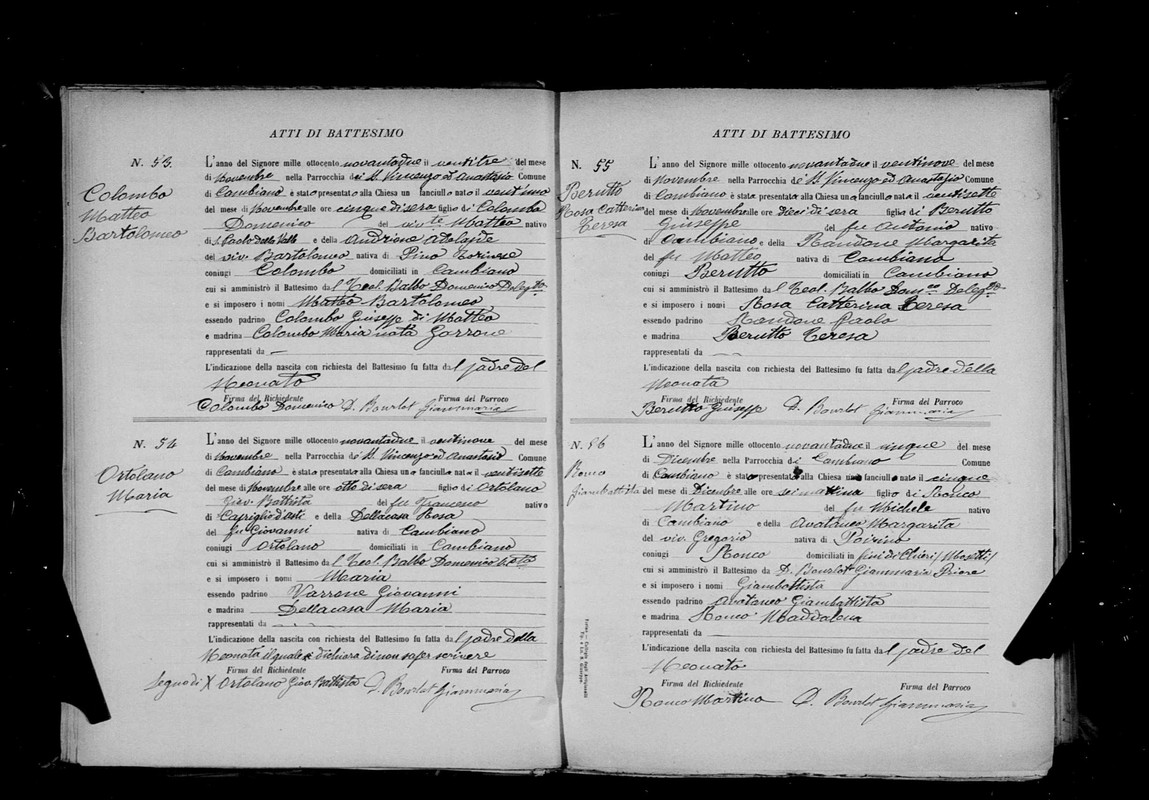 ATTI DI BATTESIMO
N. 53.
Colombo
Matteo
Bartolomeo
L'anno del Signore mille ottocento novantadue il ventitre del mese
di Novembre nella Parrocchia dei S. Vincenzo ed Anastasio Comune
di Cambiano è stato presentato alla Chiesa un fanciullo nato il
del mese di Novembre alle ore cinque di sera figlio di Colombo
Domenico del viv.te Matteo nativo
di S. Paolo della Valle e della Andrione Adelaide
del viv. Bartolomeo nativa di Pino Torinese
coniugi Colombo domiciliati in Cambiano
cui si amministrò il Battesimo dal Teol. Balbo Domenico Deleg.to
e si imposero i nomi Matteo Bartolomeo
essendo padrino Colombo Giusepp. di Matteo
e madrina Colombo Maria nata Garrone
rappresentati da —
L'indicazione della nascita con richiesta del Battesimo fu fatta dal padre del
Neonato
Firma del Richiedente Firma del Parroco
Colombo Domenico D. Bourlot Giammaria
N. 54
Ortolano
Maria
L'anno del Signore mille ottocento novantadue il ventinove del mese
di Novembre nella Parrocchia dei S. Vincenzo ed Anastasio Comune
di Cambiano è stata presentata alla Chiesa una fanciulla nata il ventisette
del mese di Novembre alle ore otto di sera figlia di Ortolano
Giov. Battista del fu nativo
di Capriglio d'Asti e della Dellacasa Rosa
del fu Giovanni nativa di Cambiano
coniugi Ortolano domiciliati in Cambiano
cui si amministrò il Battesimo dal Teol. Balbo Domenico
e si imposero i nomi Maria
essendo padrino Varrone Giovanni
e madrina Dellacasa Maria
rappresentati da
L'indicazione della nascita con richiesta del Battesimo fu fatta dal padre della
Neonata il quale dichiara di non saper scrivere
Firma del Richiedente Firma del Parroco
Segno di X Ortolano Giov. Battista D. Bourlot Giammaria
ATTI DI BATTESIMO
N. 55
Berutto
Rosa Catterina
Teresa
L'anno del Signore mille ottocento novantadue il ventinove del mese
di Novembre nella Parrocchia dei S. Vincenzo ed Anastasio Comune
di Cambiano è stata presentata alla Chiesa una fanciulla nata il ventisette
del mese di Novembre alle ore dieci di sera figlia di Berutto
Giuseppe del fu Antonio nativo
di Cambiano e della Mandone Margarita
del fu Matteo nativa di Cambiano
coniugi Berutto domiciliati in Cambiano
cui si amministrò il Battesimo dal Teol. Balbo Dom.co Deleg.to
e si imposero i nomi Rosa Catterina Teresa
essendo padrino Mandone Paolo
e madrina Berutto Teresa
rappresentati da
L'indicazione della nascita con richiesta del Battesimo fu fatta dal padre della
Neonata
Firma del Richiedente Firma del Parroco
Berutto Giusepp D. Bourlot Giammaria
N. 56
Ronco
Giambattista
L'anno del Signore mille ottocento novantadue il cinque del mese
di Dicembre nella Parrocchia di Cambiano Comune
di Cambiano è stato presentato alla Chiesa un fanciullo nato il cinque
del mese di Dicembre alle ore sei mattina figlio di Ronco
Martino del fu Michele nativo
di Cambiano e della Avataneo Margarita
del viv. Gregorio nativa di Poirino
coniugi Ronco domiciliati in fini di Chieri (Mosetti)
cui si amministrò il Battesimo da D. Bourlot Giammaria Priore
e si imposero i nomi Giambattista
essendo padrino Avataneo Giambattista
e madrina Ronco Maddalena
rappresentati da
L'indicazione della nascita con richiesta del Battesimo fu fatta dal padre del
Neonato
Firma del Richiedente Firma del Parroco
Ronco Martino D. Bourlot Giammaria